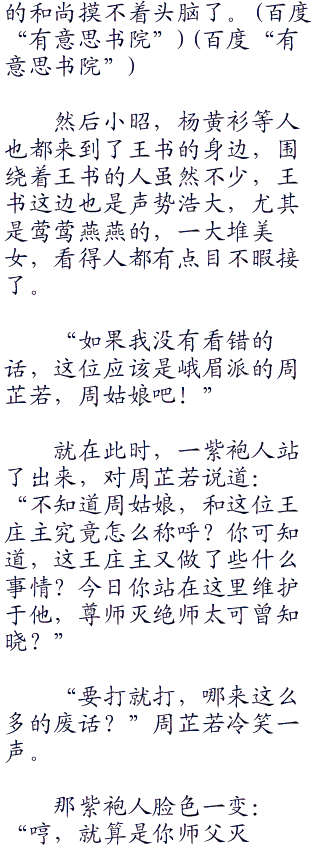 的和尚摸不着头脑了。(百度
“有意思书院”)(百度“有
意思书院”)
然后小昭，杨黄衫等人
也都来到了王书的身边，围
绕着王书的人虽然不少，王
书这边也是声势浩大，尤其
是莺莺燕燕的，一大堆美
女，看得人都有点目不暇接
了。
“如果我没有看错的
话，这位应该是峨眉派的周
芷若，周姑娘吧！”
就在此时，一紫袍人站
了出来，对周芷若说道：
“不知道周姑娘，和这位王
庄主究竟怎么称呼？你可知
道，这王庄主又做了些什么
事情？今日你站在这里维护
于他，尊师灭绝师太可曾知
晓？”
“要打就打，哪来这么
多的废话？”周芷若冷笑一
声。
那紫袍人脸色一变：
“哼，就算是你师父灭